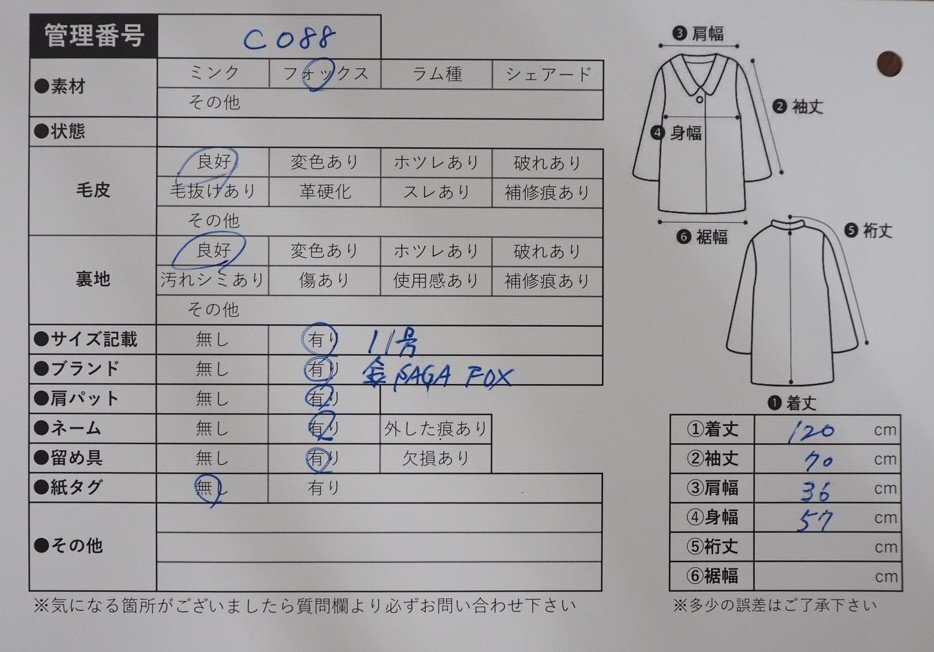 管理番号 C088
●素材 ミンク フォックス ラム種 シェアード
その他
●状態
毛皮 良好 変色あり ホツレあり 破れあり
毛抜けあり 革硬化 スレあり 補修痕あり
その他
裏地 良好 変色あり ホツレあり 破れあり
汚れシミあり 傷あり 使用感あり 補修痕あり
その他
●サイズ記載 無し 有り 11号
●ブランド 無し 有り 金 SAGA FOX
●肩パット 無し 有り
●ネーム 無し 有り 外した痕あり
●留め具 無し 有り 欠損あり
●紙タグ 無し 有り
●その他
※気になる箇所がございましたら質問欄より必ずお問い合わせ下さい
❸肩幅
❷袖丈
❹身幅
❻裄幅
❺裄丈
❶着丈
①着丈 120 cm
②袖丈 70 cm
③肩幅 36 cm
④身幅 57 cm
⑤裄丈 cm
⑥裾幅 cm
※多少の誤差はご了承下さい